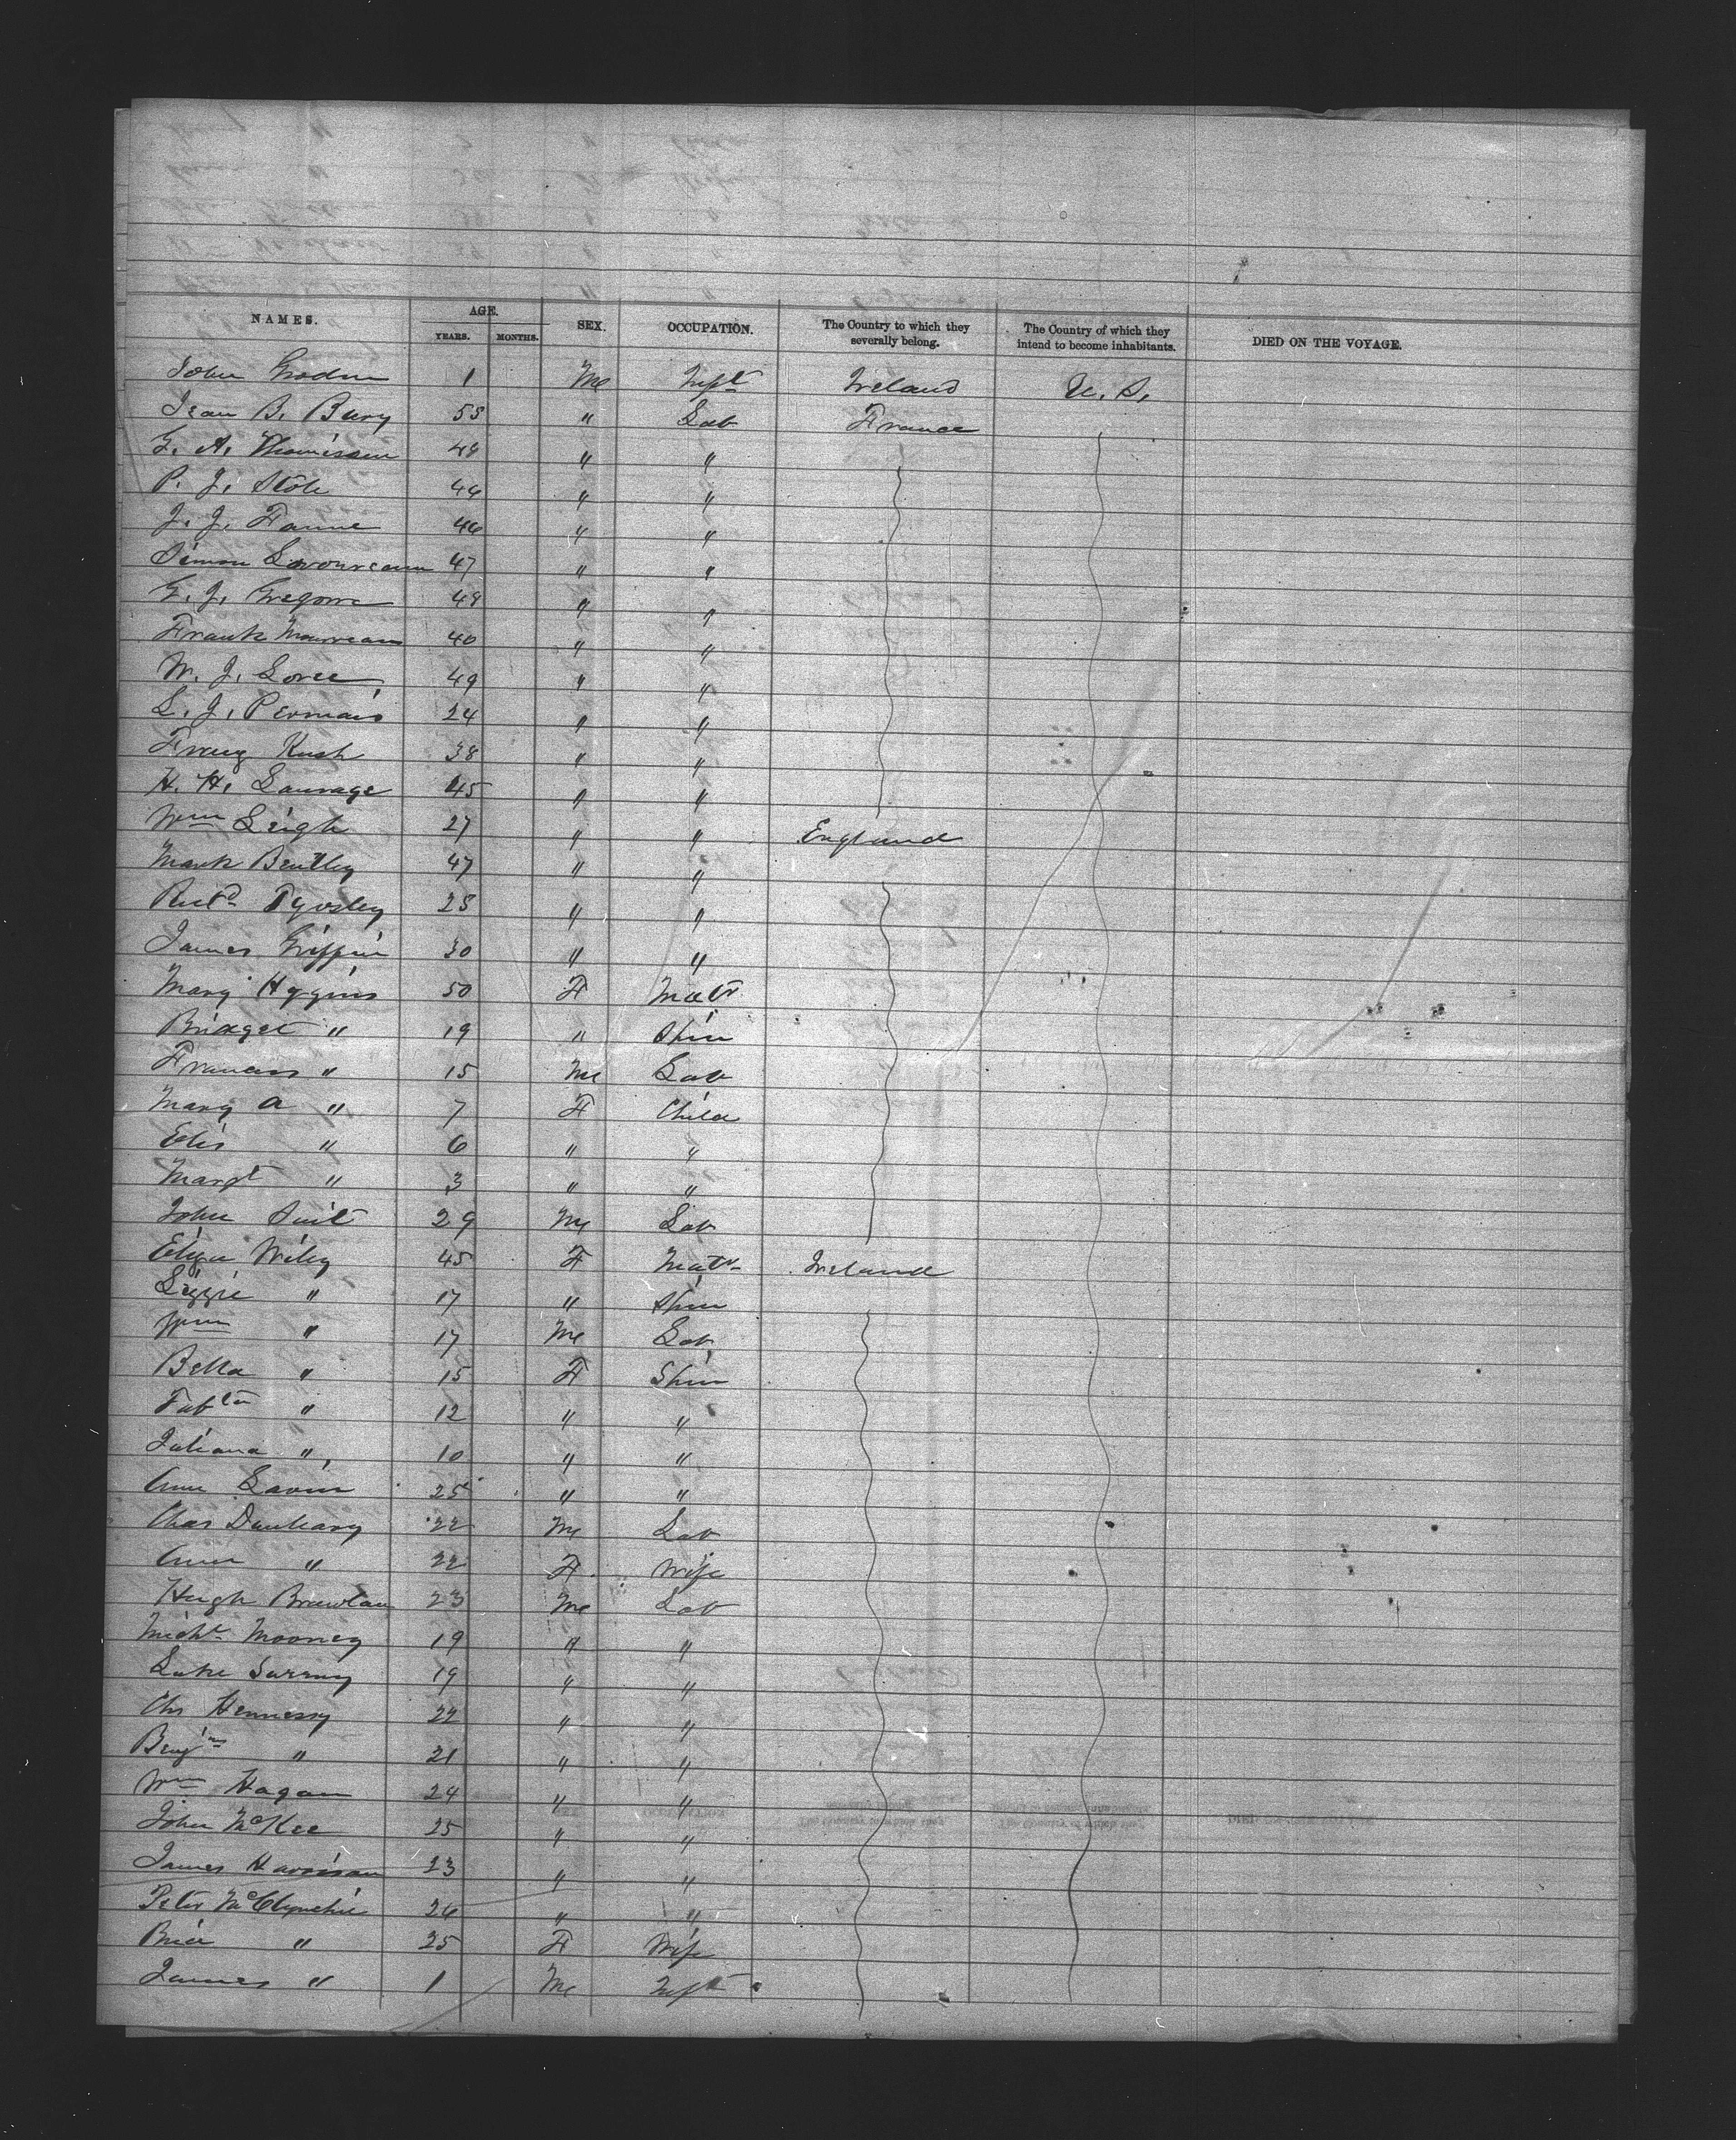 NAMES. AGE. YEARS. MONTHS. SEX. OCCUPATION. The Country to which they severally belong. The Country of which they intend to become inhabitants. DIED ON THE VOYAGE.
John 1 Me Inft Ireland U. S.
Jean B. Bury 55 " Lab France
G. A. 48 " "
P. J. 46 " "
J. J. 46 " "
Simon 47 " "
G. J. 48 " "
Frank 40 " "
W. J. 49 " "
L. J. 24 " "
Franz Kush 38 " "
H. H. Sauvage 45 " "
Wm Leigh 27 " " England
Mark Bentley 47 " "
Richd Tyosley 28 " "
James Griffin 30 " "
Mary Higgins 50 F Matr
Bridget " 19 " Spin
Francis " 15 Me Lab
Mary A " 7 F Child
Elis " 6 " "
Margt " 3 " "
John 29 Me Lab
Eliza Wiley 45 F Matr Ireland
Lizzie " 17 " Spin
Wm " 17 Me Lab
Bella " 15 F Spin
" 12 " "
Juliana " 10 " "
Ann Lavin 25 " "
Chas Dunleavy 22 Me Lab
Ann " 22 F Wife
Hugh 23 Me Lab
Michl Mooney 19 " "
Luke 19 " "
Chs Hennessy 22 " "
Benjn " 21 " "
Wm Hagan 24 " "
John McKee 25 " "
James Harrison 23 " "
Peter McClynchie 26 " "
" 25 F Wife
James " 1 Me Inft